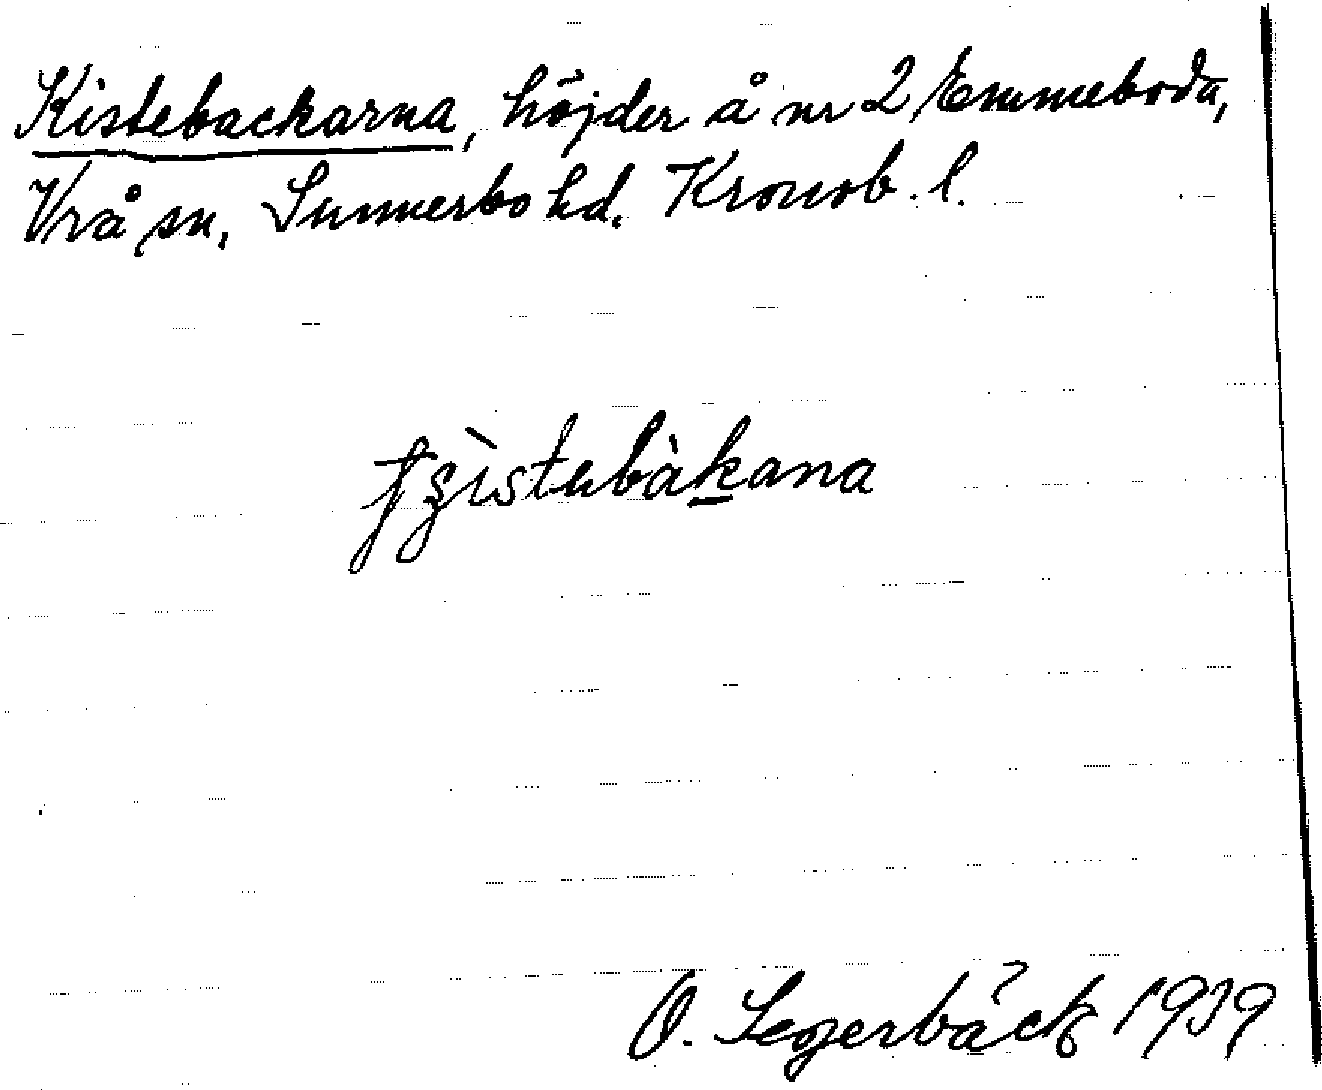 Kistebackarna, höjder å nr 2 Emmeboda,
Vrå sn, Sunnerbo hd. Kronob. l.
O. Segerbäck 1939